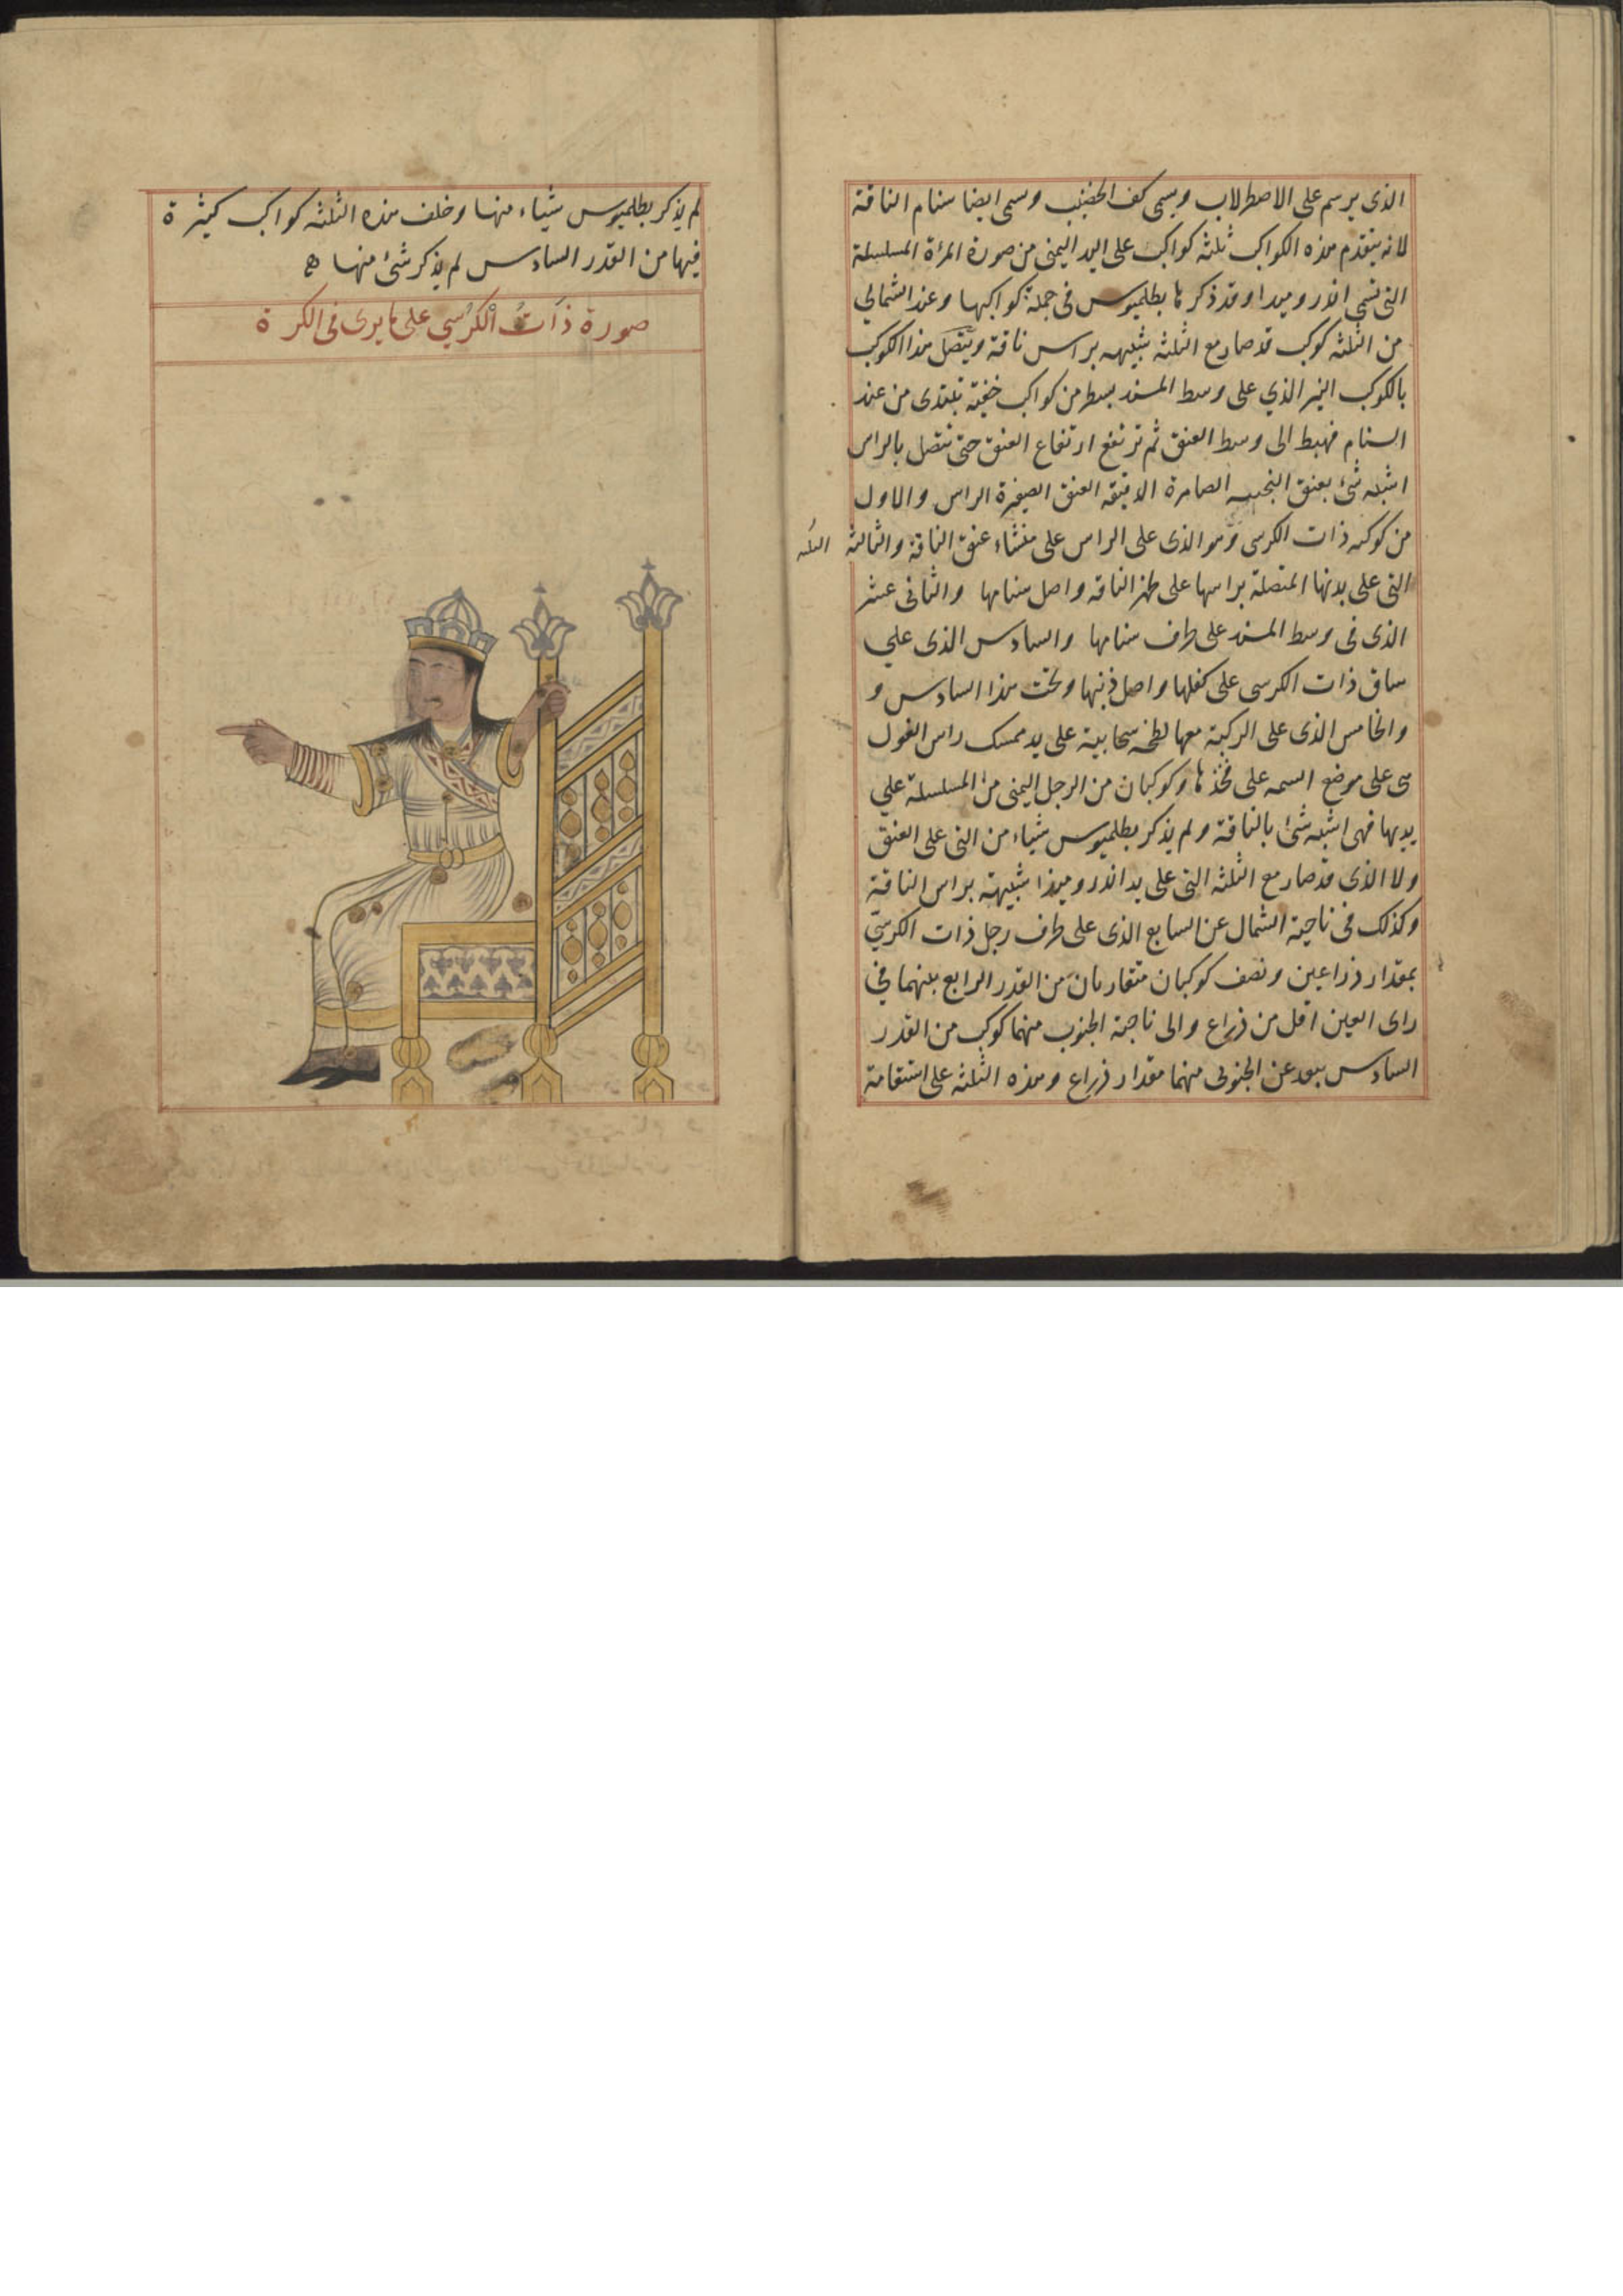 الذى يرسم على الاصطرلاب ويسمى كف الخضيب وسمى ايضا سنام الناقة
لانه يتقدم هذه الكواكب ثلثه كواكب على اليد اليمنى من صورة المرٔة المسلسلة
التى تسمى اندروميدا وقد ذكرها بطلميوس فى جملة كواكبها وعند الشمالي
من الثلثه كوكب قد صار مع الثلثه شبيهه براس ناقة ويتصل هذا الكوكب
بالكوكب النير الذي على وسط المسند بسطر من كواكب خفية تبتدى من عند
السنام فهبط الى وسط العنق ثم ترتفع ارتفاع العنق حتى تتصل بالراس
اشبه شئ بعنق النجيبه الضامرة الدقيقه العنق الصغيرة الراس والاول
من كوكبه ذات الكرسى وهو الذى على الراس على منشاء عنق الناقة والثالثه
التى على بدنها المتصلة براسها على ظهر الناقه واصل سنامها والثانى عشر
الذى فى وسط المسند على طرف سنامها والسادس الذى علي
ساق ذات الكرسى على كفلها واصل ذنبها وتحت هذا السادس و
والخامس الذى على الركبة معها لطخه سحابية على يد ممسك راس الغول
هى على موضع السمه على فخذها وكوكبان من الرجل اليمنى من المسلسلة علي
يديها فهى اشبه شئ بالناقة ولم يذكر بطلميوس شئاء من التى على العنق
ولا الذى قد صار مع الثلثه التى على يد اندروميدا شبيهة براس الناقة
وكذلك فى ناحية الشمال عن السابع الذى على طرف رجل ذات الكرسي
بمقدار ذراعين ونصف كوكبان متقاربان من القدر الرابع بينهما في
راى العين اقل من ذراع والى ناحية الجنوب منهما كوكب من القدر
السادس يبعد عن الجنوبى منهما مقدار ذراع وهذه الثلثه على استقامة
لم يذكر بطلميوس شئاء منها وخلف هذه الثلثه كواكب كثيرة
فيها من القدر السادس لم يذكر شئ منها ه
صورة ذات الكرسي على ما يرى فى الكرة